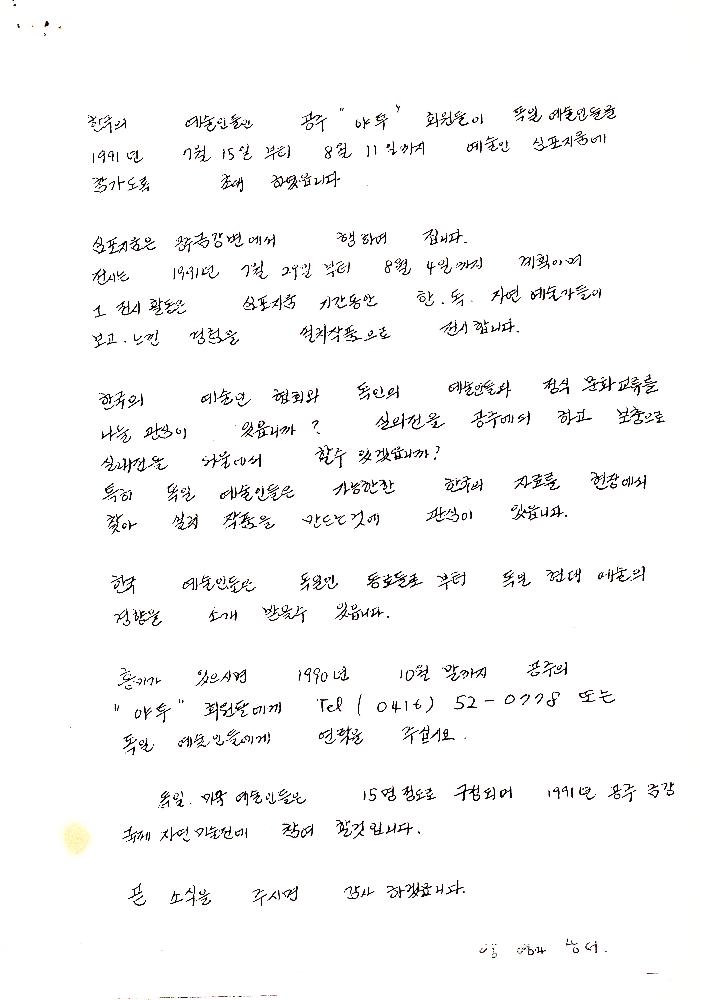 한국의 예술인들인 공주 "야투" 회원들이 독일 예술인들을
1991년 7월 15일 부터 8월 11일까지 예술인 심포지움에
참가도록 초대 하였읍니다
심포지움은 공주금강변에서 행하여 집니다.
전시는 1991년 7월 29일 부터 8월 4일까지 계획이며
그 전시 활동은 심포지움 기간동안 한.독. 자연 예술가들이
보고.느낀 경험을 설치작품으로 전시합니다.
한국의 예술인 협회와 독일의 예술인들과 정식 문화교류를
나눌 관심이 있읍니까? 실외전을 공주에서 하고 보충으로
실내전을 서울에서 할수 있겠읍니까?
특히 독일 예술인들은 가능한한 한국의 자료를 현장에서
찾아 설치 작품을 만드는것에 관심이 있읍니다.
한국 예술인들은 독일인 동료들로 부터 독일 현대 예술의
경향을 소개 받을수 있읍니다.
흥미가 있으시면 1990년 10월 말까지 공주의
"야투" 회원들에게 Tel (0416) 52-0778 또는
독일 예술인들에게 연락을 주십시요.
독일. 예술인들은 15명 정도로 구성되며 1991년 공주 금강
국제 자연미술전에 참여 할것입니다.
곧 소식을 주시면 감사 하겠읍니다.